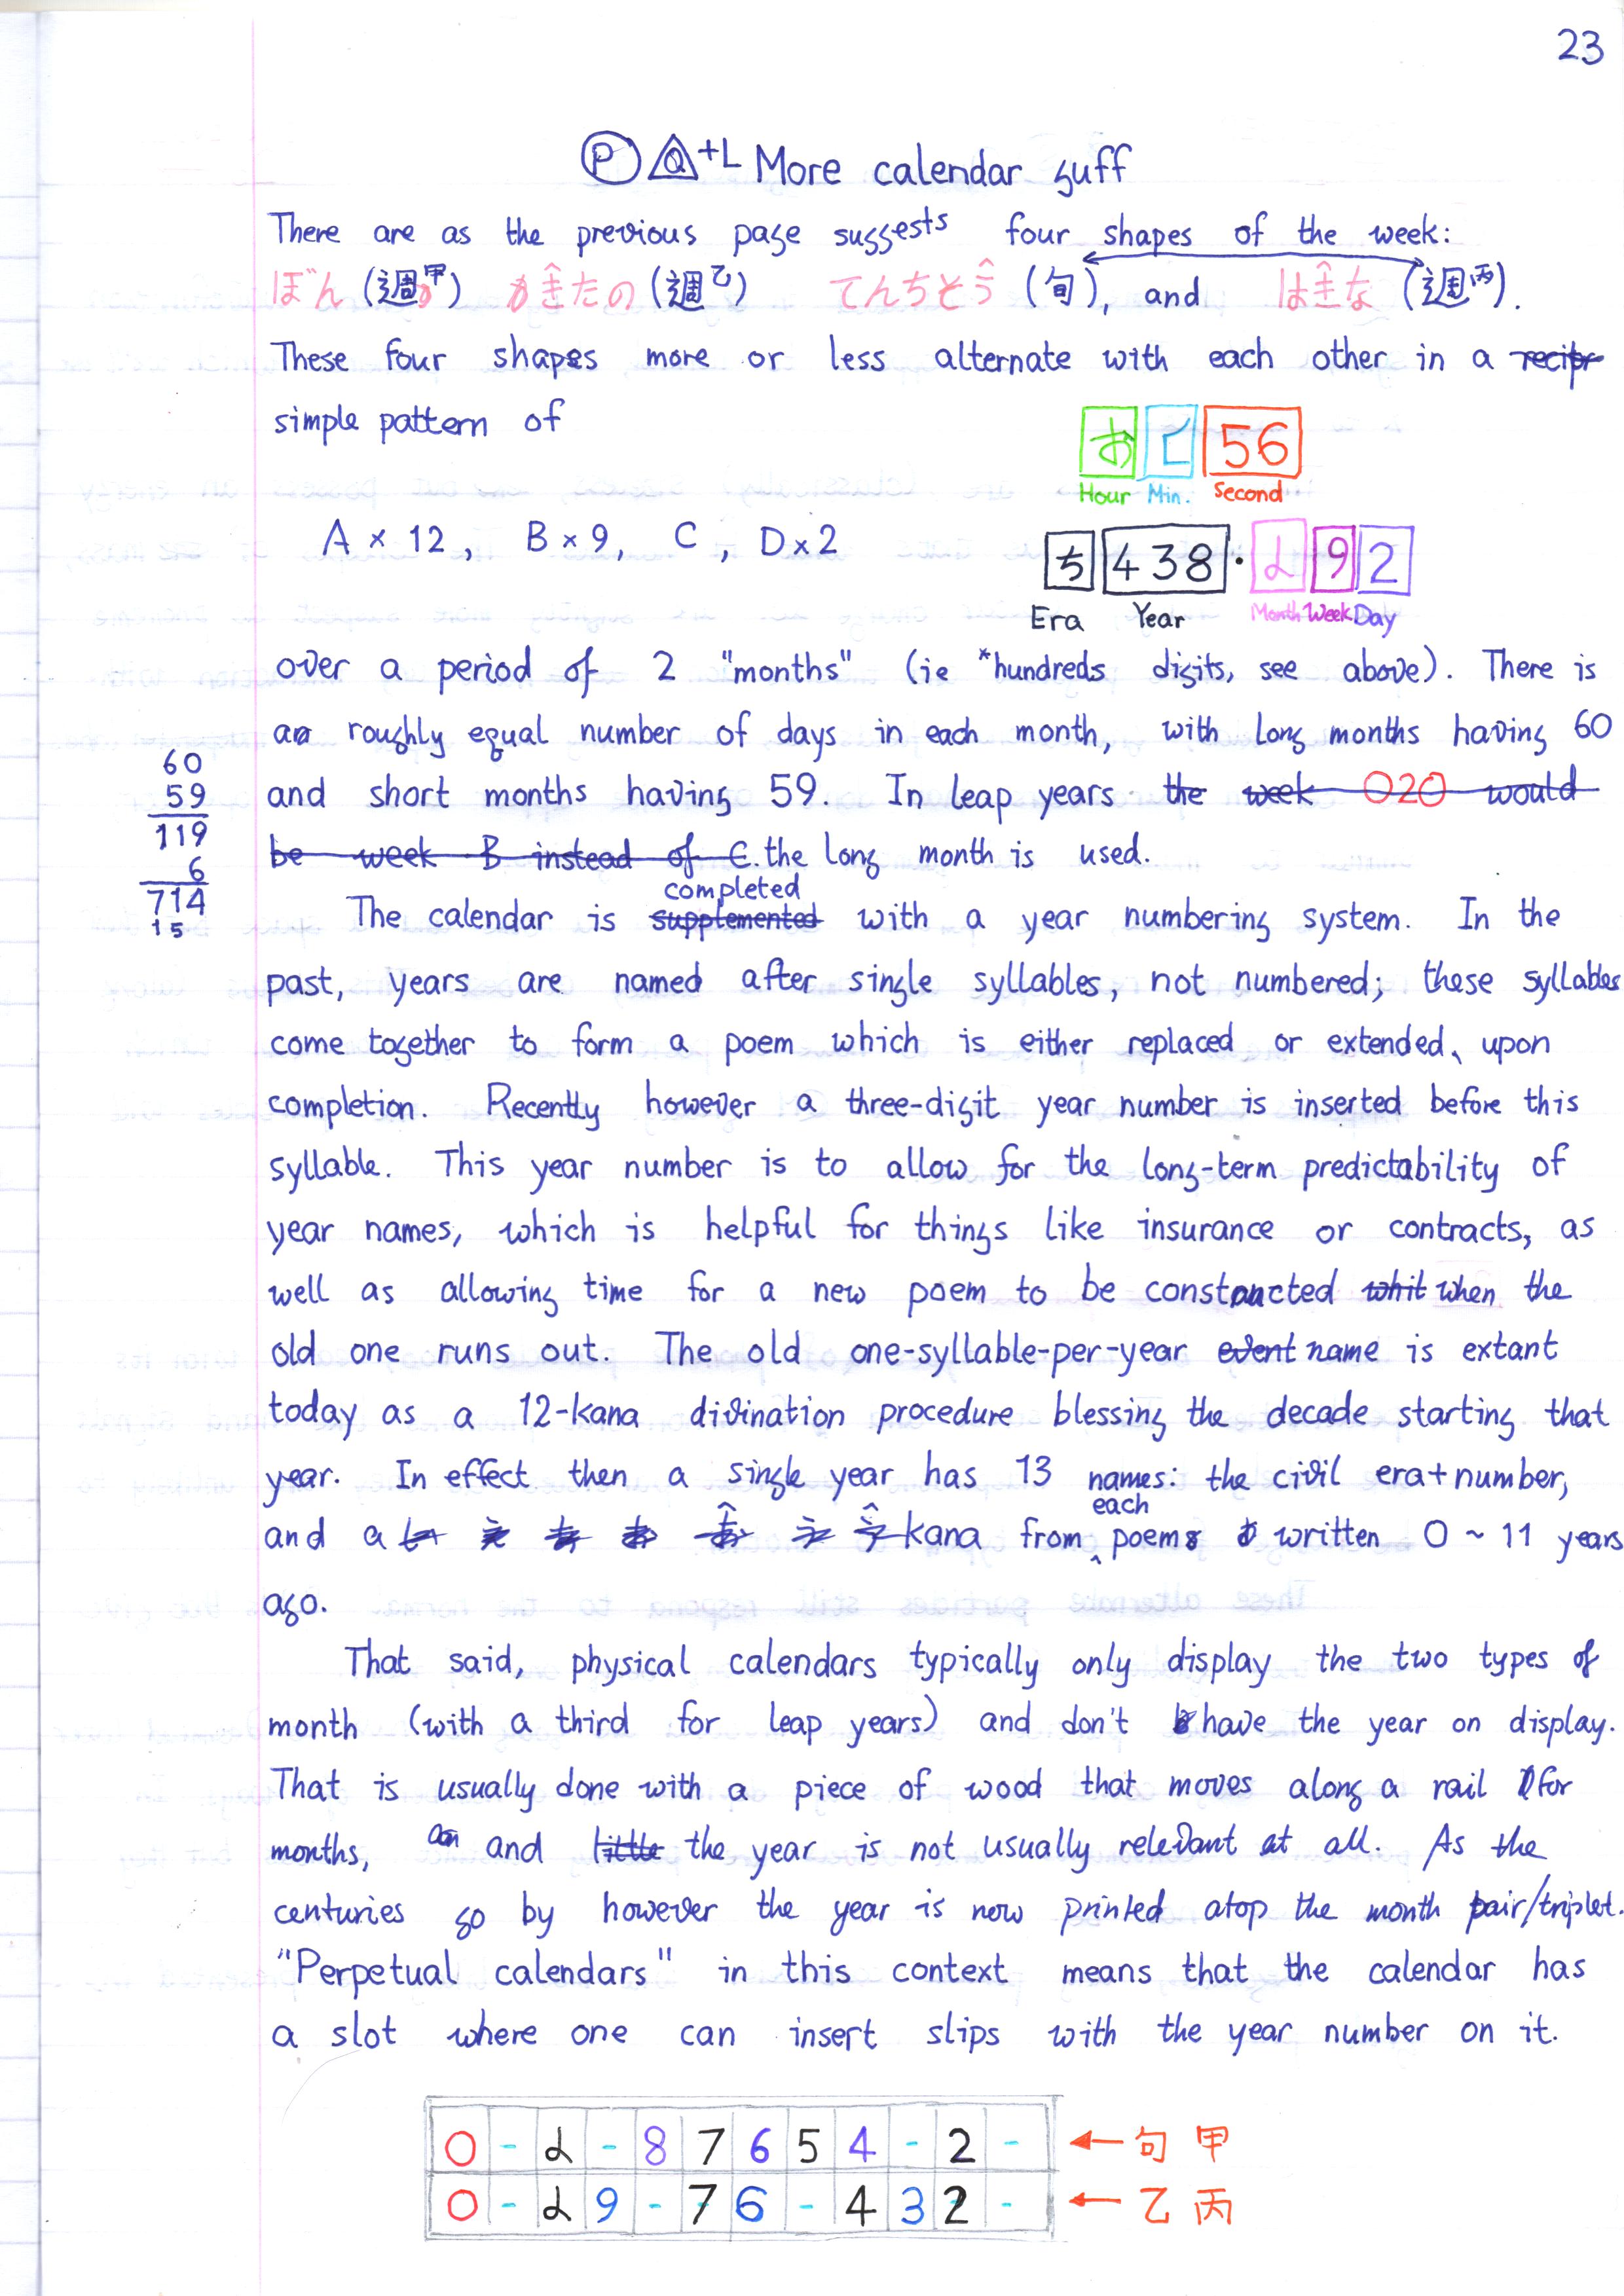 23
Ⓟ Q +L More calendar suff
There are as the previous page suggests four shapes of the week:
ぼん (週甲) かきたの (週乙) てんちとう (旬), and はきな (週丙).
These four shapes more or less alternate with each other in a recipr
simple pattern of
お 56
Hour Min. Second
A × 12, B × 9, C, D × 2
ち 438 · 2 9 2
Era Year Month Week Day
over a period of 2 "months" (ie *hundreds digits, see above). There is
an roughly equal number of days in each month, with long months having 60
and short months having 59. In leap years the week 020 would
be week B instead of C. the long month is used.
60
59
119
6
714
15
The calendar is supplemented completed with a year numbering system. In the
past, years are named after single syllables, not numbered; these syllables
come together to form a poem which is either replaced or extended, upon
completion. Recently however a three-digit year number is inserted before this
syllable. This year number is to allow for the long-term predictability of
year names, which is helpful for things like insurance or contracts, as
well as allowing time for a new poem to be constructed whit when the
old one runs out. The old one-syllable-per-year event name is extant
today as a 12-kana divination procedure blessing the decade starting that
year. In effect then a single year has 13 names: the civil era+number,
and a kana from each poem written 0 ~ 11 years
ago.
That said, physical calendars typically only display the two types of
month (with a third for leap years) and don't have the year on display.
That is usually done with a piece of wood that moves along a rail for
months, an and little the year is not usually relevant at all. As the
centuries go by however the year is now printed atop the month pair/triplet.
"Perpetual calendars" in this context means that the calendar has
a slot where one can insert slips with the year number on it.
0 - 2 - 8 7 6 5 4 - 2 - ← 旬 甲
0 - 2 9 - 7 6 - 4 3 2 - ← 乙 丙